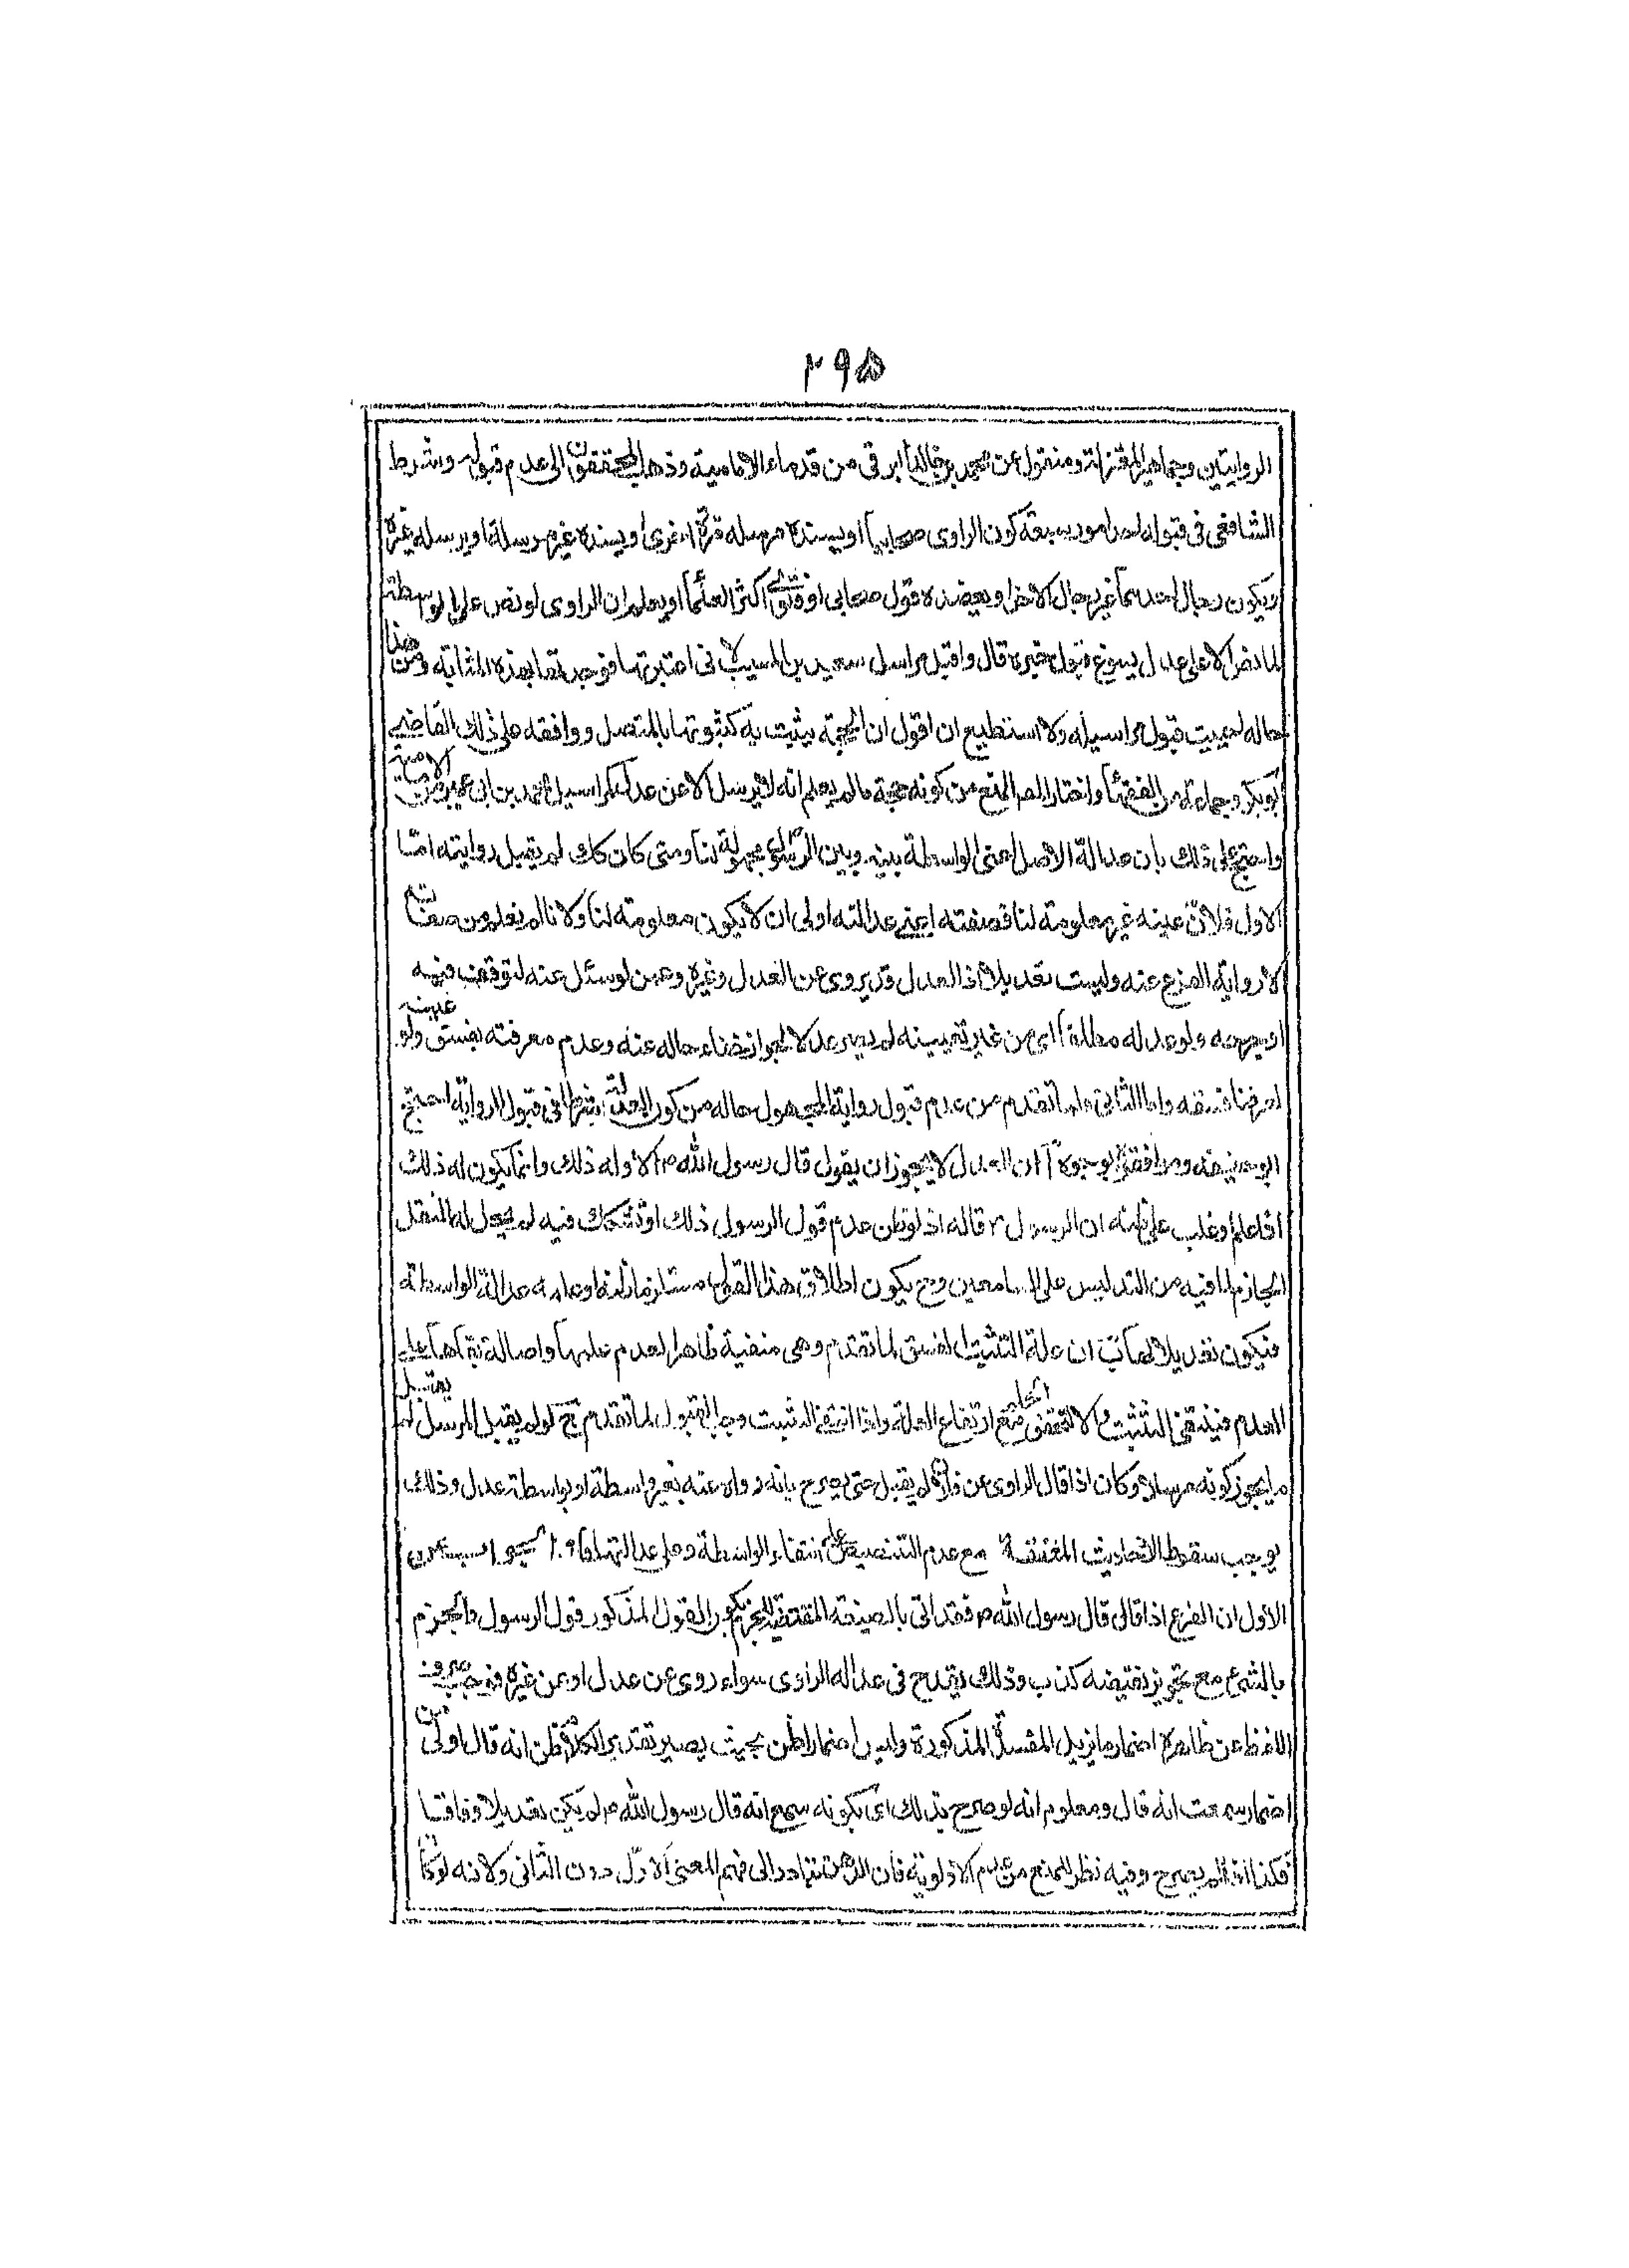 ۲۹۵
الروايتين وجماهير المعتزلة ومنقول عن محمد بن خالد البرقى من قدماء الامامية وذهب المحققون الى عدم قبوله وشرط
الشافعى فى قبوله احد امور سبعة كون الراوى صحابيا او يسنده مرسله مرة اخرى او يسنده غير مرسله او يرسله غيره
ويكون رجال احدهما غير رجال الاخر او يعضده قول صحابى او فتوى اكثر العلماء او يعلم ان الراوى لو نص على الواسطة
لما نص الا على عدل يسوغ قبول خبره قال واقبل مراسيل سعيد بن المسيب لانى اعتبرتها فوجدتها بهذه المثابة ومن هذا
حاله احببت قبول مراسيله ولا استطيع ان اقول ان الحجة يثبت به كثبوتها بالمتصل ووافقه على ذلك القاضى
ابوبكر وجماعة من الفقهاء واختار المص المنع من كونه حجة مالم يعلم انه لا يرسل الا عن عدل كمراسيل محمد بن ابى عمير من الامامية
واحتج على ذلك بان عدالة الاصل اعنى الواسطة بينه وبين الرسول مجهولة لنا ومتى كان كك لم يقبل روايته اما
الاول فلان عينه غير معلومة لنا فصفته اعنى عدالته اولى ان لا يكون معلومة لنا ولانا لم نعلم من صفاته
الا رواية الفرع عنه وليست تعديلا اذ العدل قد يروى عن العدل وغيره وعمن لو سئل عنه لتوقف فيه
او جرحه ولو عدله مطلقا اى من غير تعيينه لم يصر عدلا لجواز خفاء حاله عنه وعدم معرفته بفسق ولو عينه
لعرفنا فسقه واما الثانى فلما تقدم من عدم قبول رواية المجهول حاله من كون العدالة شرطا فى قبول الرواية احتج
ابو حنيفة وموافقوه بوجوه آ ان العدل لا يجوز ان يقول قال رسول الله ص الا وله ذلك وانما يكون له ذلك
اذا علم او غلب على ظنه ان الرسول ص قاله اذ لو ظن عدم قول الرسول ذلك او تشكك فيه لم يحل له النقل
الجازم لما فيه من التدليس على السامعين وح يكون اطلاق هذا القول مستلزما لظنه او علمه عدالة الواسطة
فيكون تعديلا لها ب ان علة التثبت الفسق لما تقدم وهى منفية ظاهرا لعدم علمها واصالة بقائها على
العدم فينتفى التثبت والا لتحقق الحكم مع ارتفاع العلة واذا انتفى التثبت وجب القبول لما تقدم ج لو لم يقبل المرسل لم يقبل
ما يجوز كونه مرسلا وكان اذا قال الراوى عن فلان لم يقبل حتى يصرح بانه رواه عنه بغير واسطة او بواسطة عدل وذلك
يوجب سقوط الاحاديث المعنعنة مع عدم التنصيص على انتفاء الواسطة وعلى عدالتها والجواب عن
الاول ان الفرع اذا قال قال رسول الله ص فقد اتى بالصيغة المقتضية للجزم بكون القول المذكور قول الرسول والجزم
بالشىء مع تجويز نقيضه كذب وذلك يقدح فى عدالة الراوى سواء روى عن عدل او عن غيره فيجب صرف
اللفظ عن ظاهره اضمار ما يزيل المفسدة المذكورة وليس اضمار اظن بحيث يصير تقدير الكلام اظن انه قال اولى من
اضمار سمعت انه قال ومعلوم انه لو صرح بذلك اى بكونه سمع انه قال رسول الله ص لم يكن تعديلا وفاقا
فكذا اذا لم يصرح وفيه نظر للمنع من عدم الاولوية فان الذهن يتبادر الى فهم المعنى الاول دون الثانى ولانه لو كان